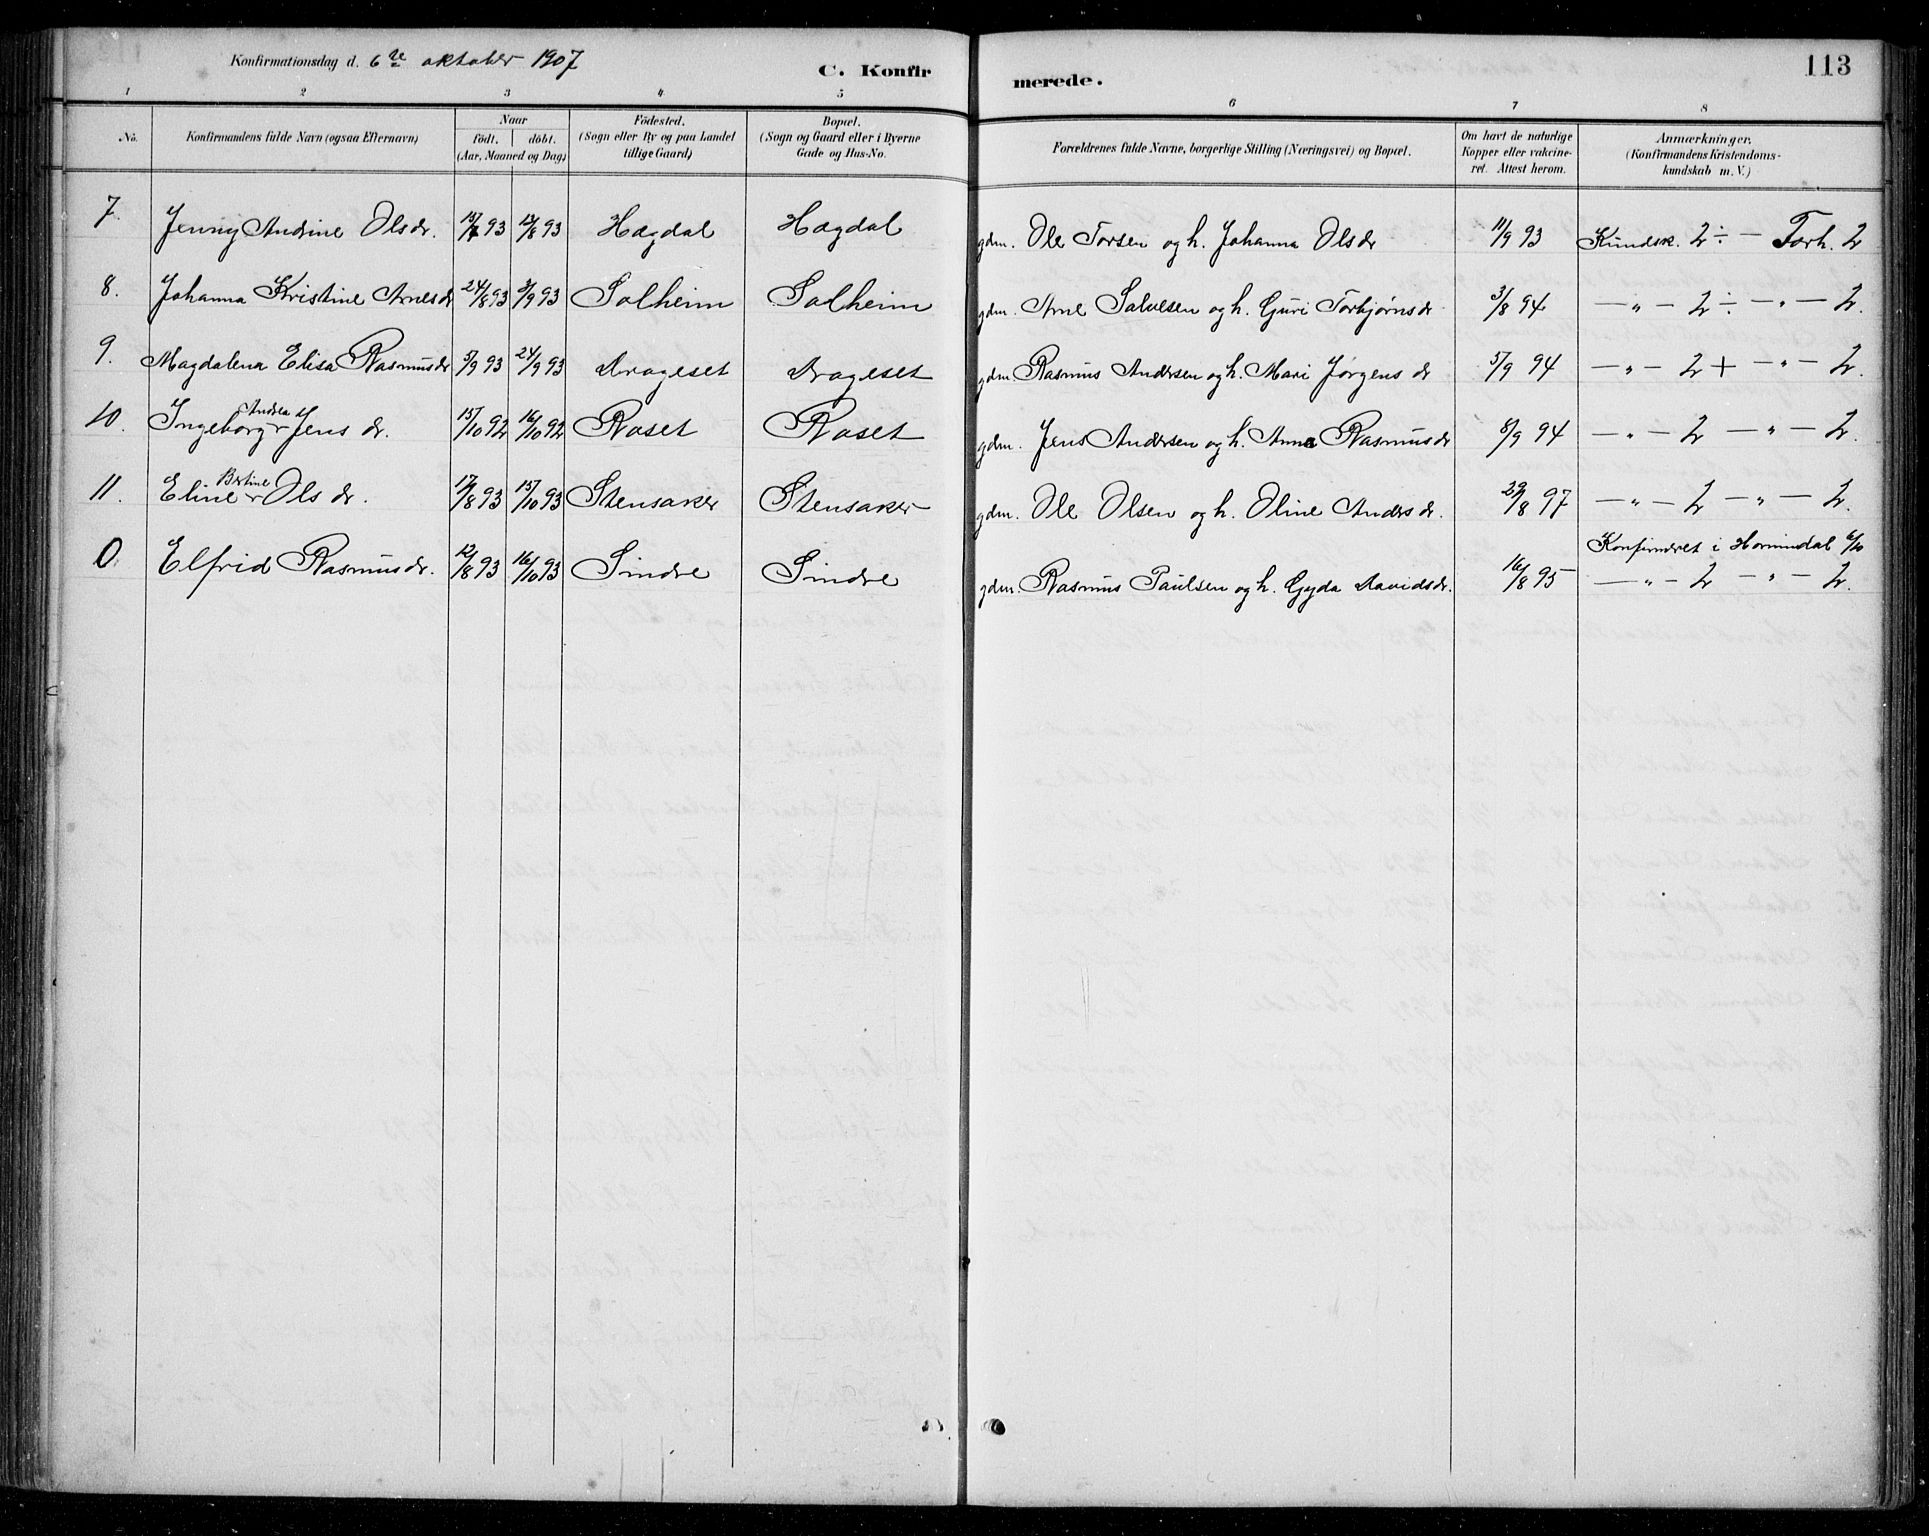 Konfirmationsdag d. 6te oktober 1907
C. Konfirmerede.
113
1 2 3 4 5 6 7 8
No. Konfirmandens fulde Navn (ogsaa Efternavn) Naar födt. döbt. (Aar, Maaned og Dag) Födested. (Sogn eller By og paa Landet tillige Gaard) Bopæl. (Sogn og Gaard eller i Byerne Gade og Hus-No. Forældrenes fulde Navne, borgerlige Stilling (Næringsvei) og Bopæl. Om havt de naturlige Kopper eller vakcineret. Attest herom. Anmærkninger. (Konfirmandens Kristendomskundskab m. V.)
7. Jenny Andrine Olsdr. 15/7 93 12/8 93 Hægdal Hægdal gdm. Ole Torsen og h. Johanna Olsdr 11/9 93 Kundsk. 2 ÷ — Forh. 2
8. Johanna Kristine Arnesdr 24/8 93 3/9 93 Solheim Solheim gdm. Arne Salvesen og h. Guri Torbjørnsdr 3/8 94 — " — 2 ÷ — " — 2.
9. Magdalena Elisa Rasmusdr 5/9 93 24/9 93 Drageset Drageset gdm. Rasmus Andersen og h. Mari Jørgensdr 5/9 94 — " — 2 + — " — 2.
10. Ingeborg Andrea Jensdr. 15/10 92 16/10 92 Roset Roset gdm. Jens Andersen og h. Anna Rasmusdr 8/9 94 — " — 2 — " — 2.
11. Eline Bertine Olsdr. 17/8 93 15/10 93 Stensaker Stensaker gdm. Ole Olsen og h. Oline Andersdr. 29/8 97 — " — 2 — " — 2.
Konfirmeret i Hornindal 6/10
0. Elfrid Rasmusdr. 12/8 93 16/10 93 Sindre Sindre gdm. Rasmus Paulsen og h. Gyda Davidsdr. 16/8 95 — " — 2 — " — 2.